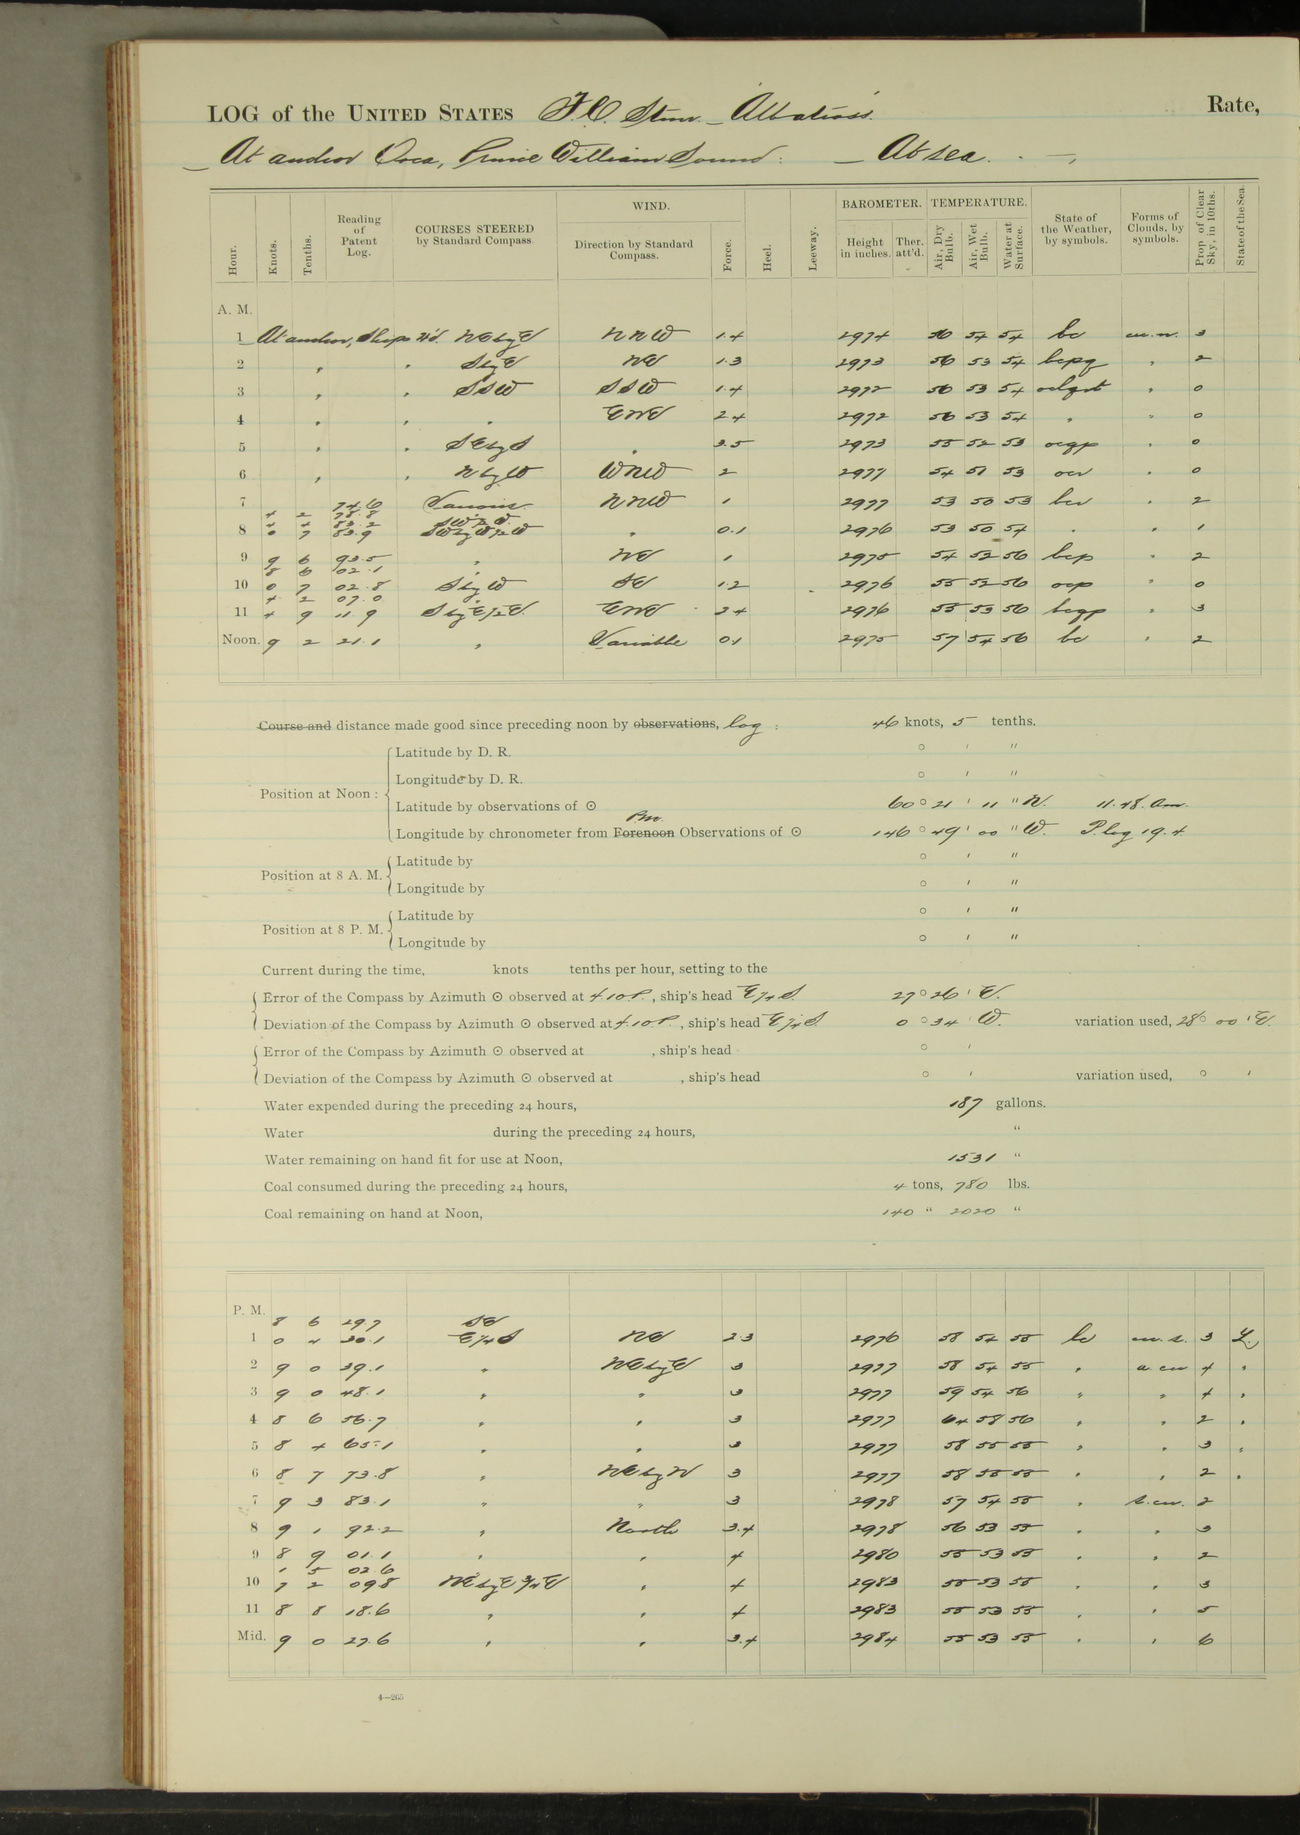 LOG of the UNITED STATES F.C. Stmr. Albatross. Rate,
At anchor Orca, Prince William Sound: At sea.
Hour. Knots. Tenths. Reading of Patent Log. COURSES STEERED by Standard Compass. WIND. Direction by Standard Compass. Force. Heel. Leeway. BAROMETER. Height in inches. Ther. att'd. TEMPERATURE. Air, Dry Bulb. Air, Wet Bulb. Water at Surface. State of the Weather, by symbols. Forms of Clouds, by symbols. Prop. of Clear Sky, in 10ths. State of the Sea.
A. M.
1 At anchor, Ships h'd. NE by E NNW 1.4 2974 56 54 54 bc cu. n. 3
2 , , S by E NE 1.3 2973 56 53 54 bcpq , 2
3 , , SSW SSW 1.4 2972 56 53 54 , 0
4 , , , ENE 2.4 2972 56 53 54 , " 0
5 , , SE by S , 3.5 2973 55 52 53 ocqp , 0
6 , , N by W WNW 2 2977 54 51 53 , 0
7 74.6 Various NNW 1 2977 53 50 53 , 2
4 2 78.8
4 4 83.2 SW 1/2 W.
8 0 7 83.9 SW by W 1/2 W , 0.1 2976 53 50 54 . , 1
9 9 6 93.5 , NE 1 2975 54 52 56 bcp , 2
8 6 02.1 ,
10 0 7 02.8 S by W SE 1.2 2976 55 52 56 ocp , 0
4 2 07.0 ,
11 4 9 11 9 S by E 1/2 E. ENE 2 4 2976 55 53 56 bcqp , 3
Noon. 9 2 21.1 , Variable 0.1 2975 57 54 56 bc , 2
Course and distance made good since preceding noon by observations, log : 46 knots, 5 tenths.
Position at Noon :
Latitude by D. R. ° ' "
Longitude by D. R. ° ' "
Latitude by observations of ☉ 60 ° 21 ' 11 " N. 11.48. am.
Pm.
Longitude by chronometer from Forenoon Observations of ☉ 146 ° 49 ' 00 " W. P. log 19.4
Position at 8 A. M.
Latitude by ° ' "
Longitude by ° ' "
Position at 8 P. M.
Latitude by ° ' "
Longitude by ° ' "
Current during the time, knots tenths per hour, setting to the
Error of the Compass by Azimuth ☉ observed at 4.10 P. , ship's head E 1/4 S. 27 ° 26 ' E.
Deviation of the Compass by Azimuth ☉ observed at 4.10 P. , ship's head E 1/4 S. 0 ° 34 ' W. variation used, 28 ° 00 ' E.
Error of the Compass by Azimuth ☉ observed at , ship's head ° '
Deviation of the Compass by Azimuth ☉ observed at , ship's head ° ' variation used, ° '
Water expended during the preceding 24 hours, 187 gallons.
Water during the preceding 24 hours, "
Water remaining on hand fit for use at Noon, 1531 "
Coal consumed during the preceding 24 hours, 4 tons, 780 lbs.
Coal remaining on hand at Noon, 140 " 2020 "
P. M.
8 6 29.7 SE
1 0 4 30.1 E 1/4 S NE 2 3 2976 58 54 55 bc cu. s. 3 L
2 9 0 39.1 " NE by E 3 2977 58 54 55 , a cu 4 "
3 9 0 48.1 , " 3 2977 59 54 56 " " 4 ,
4 8 6 56.7 , , 3 2977 64 58 56 , , 2 ,
5 8 4 65.1 , , 3 2977 58 55 55 , , 3 ,
6 8 7 73.8 , NE by N 3 2977 58 55 55 , , 2 ,
7 9 3 83.1 " " 3 2978 57 54 55 , s. cu. 2
8 9 1 92.2 , North 3.4 2978 56 53 55 , , 3
9 8 9 01.1 , , 4 2980 55 53 55 , , 2
1 5 02.6
10 7 2 098 NE by E 3/4 E , 4 2983 55 53 55 , , 3
11 8 8 18.6 , , 4 2983 55 53 55 , , 5
Mid. 9 0 27.6 , , 3.4 2984 55 53 55 , , 6
4—265